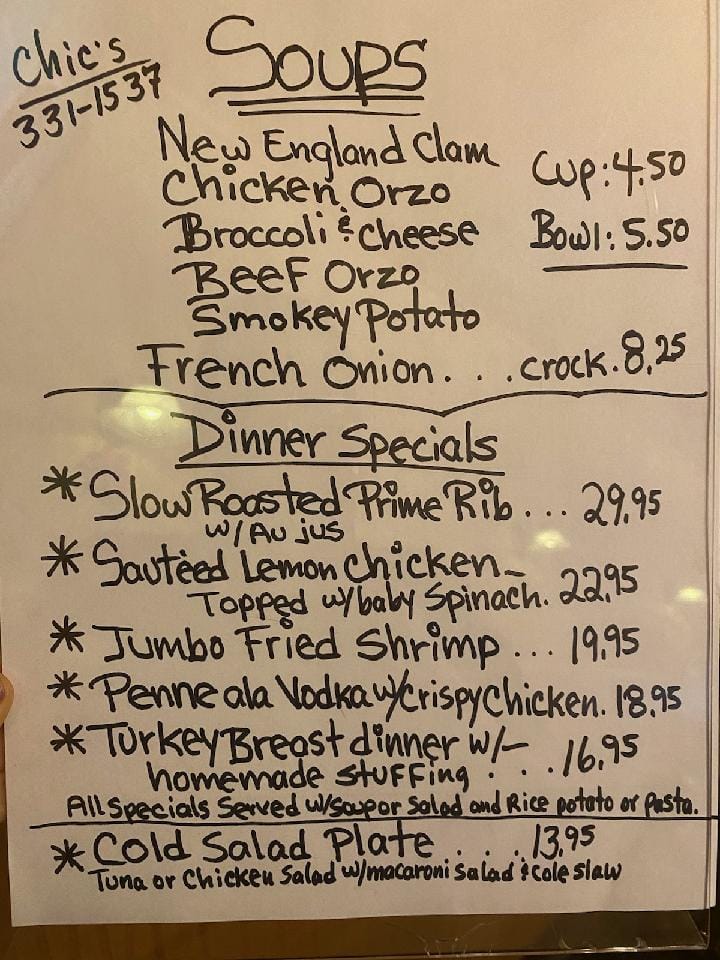 Chic's
331-1537
Soups
New England Clam
Chicken Orzo
Cup: 4.50
Broccoli & Cheese
Bowl: 5.50
Beef Orzo
Smokey Potato
French Onion. . . . crock. 8.25
Dinner Specials
* Slow Roasted Prime Rib . . . 29.95
w/ Au jus
* Sautèed Lemon Chicken -
Topped w/baby Spinach. 22.95
* Jumbo Fried Shrimp . . . 19.95
* Penne ala Vodka w/crispy Chicken. 18.95
* Turkey Breast dinner w/-
homemade stuffing . . . 16.95
All Specials Served w/soup or Salad and Rice potato or Pasta.
* Cold Salad Plate . . . . 13.95
Tuna or Chicken Salad w/macaroni salad & cole slaw